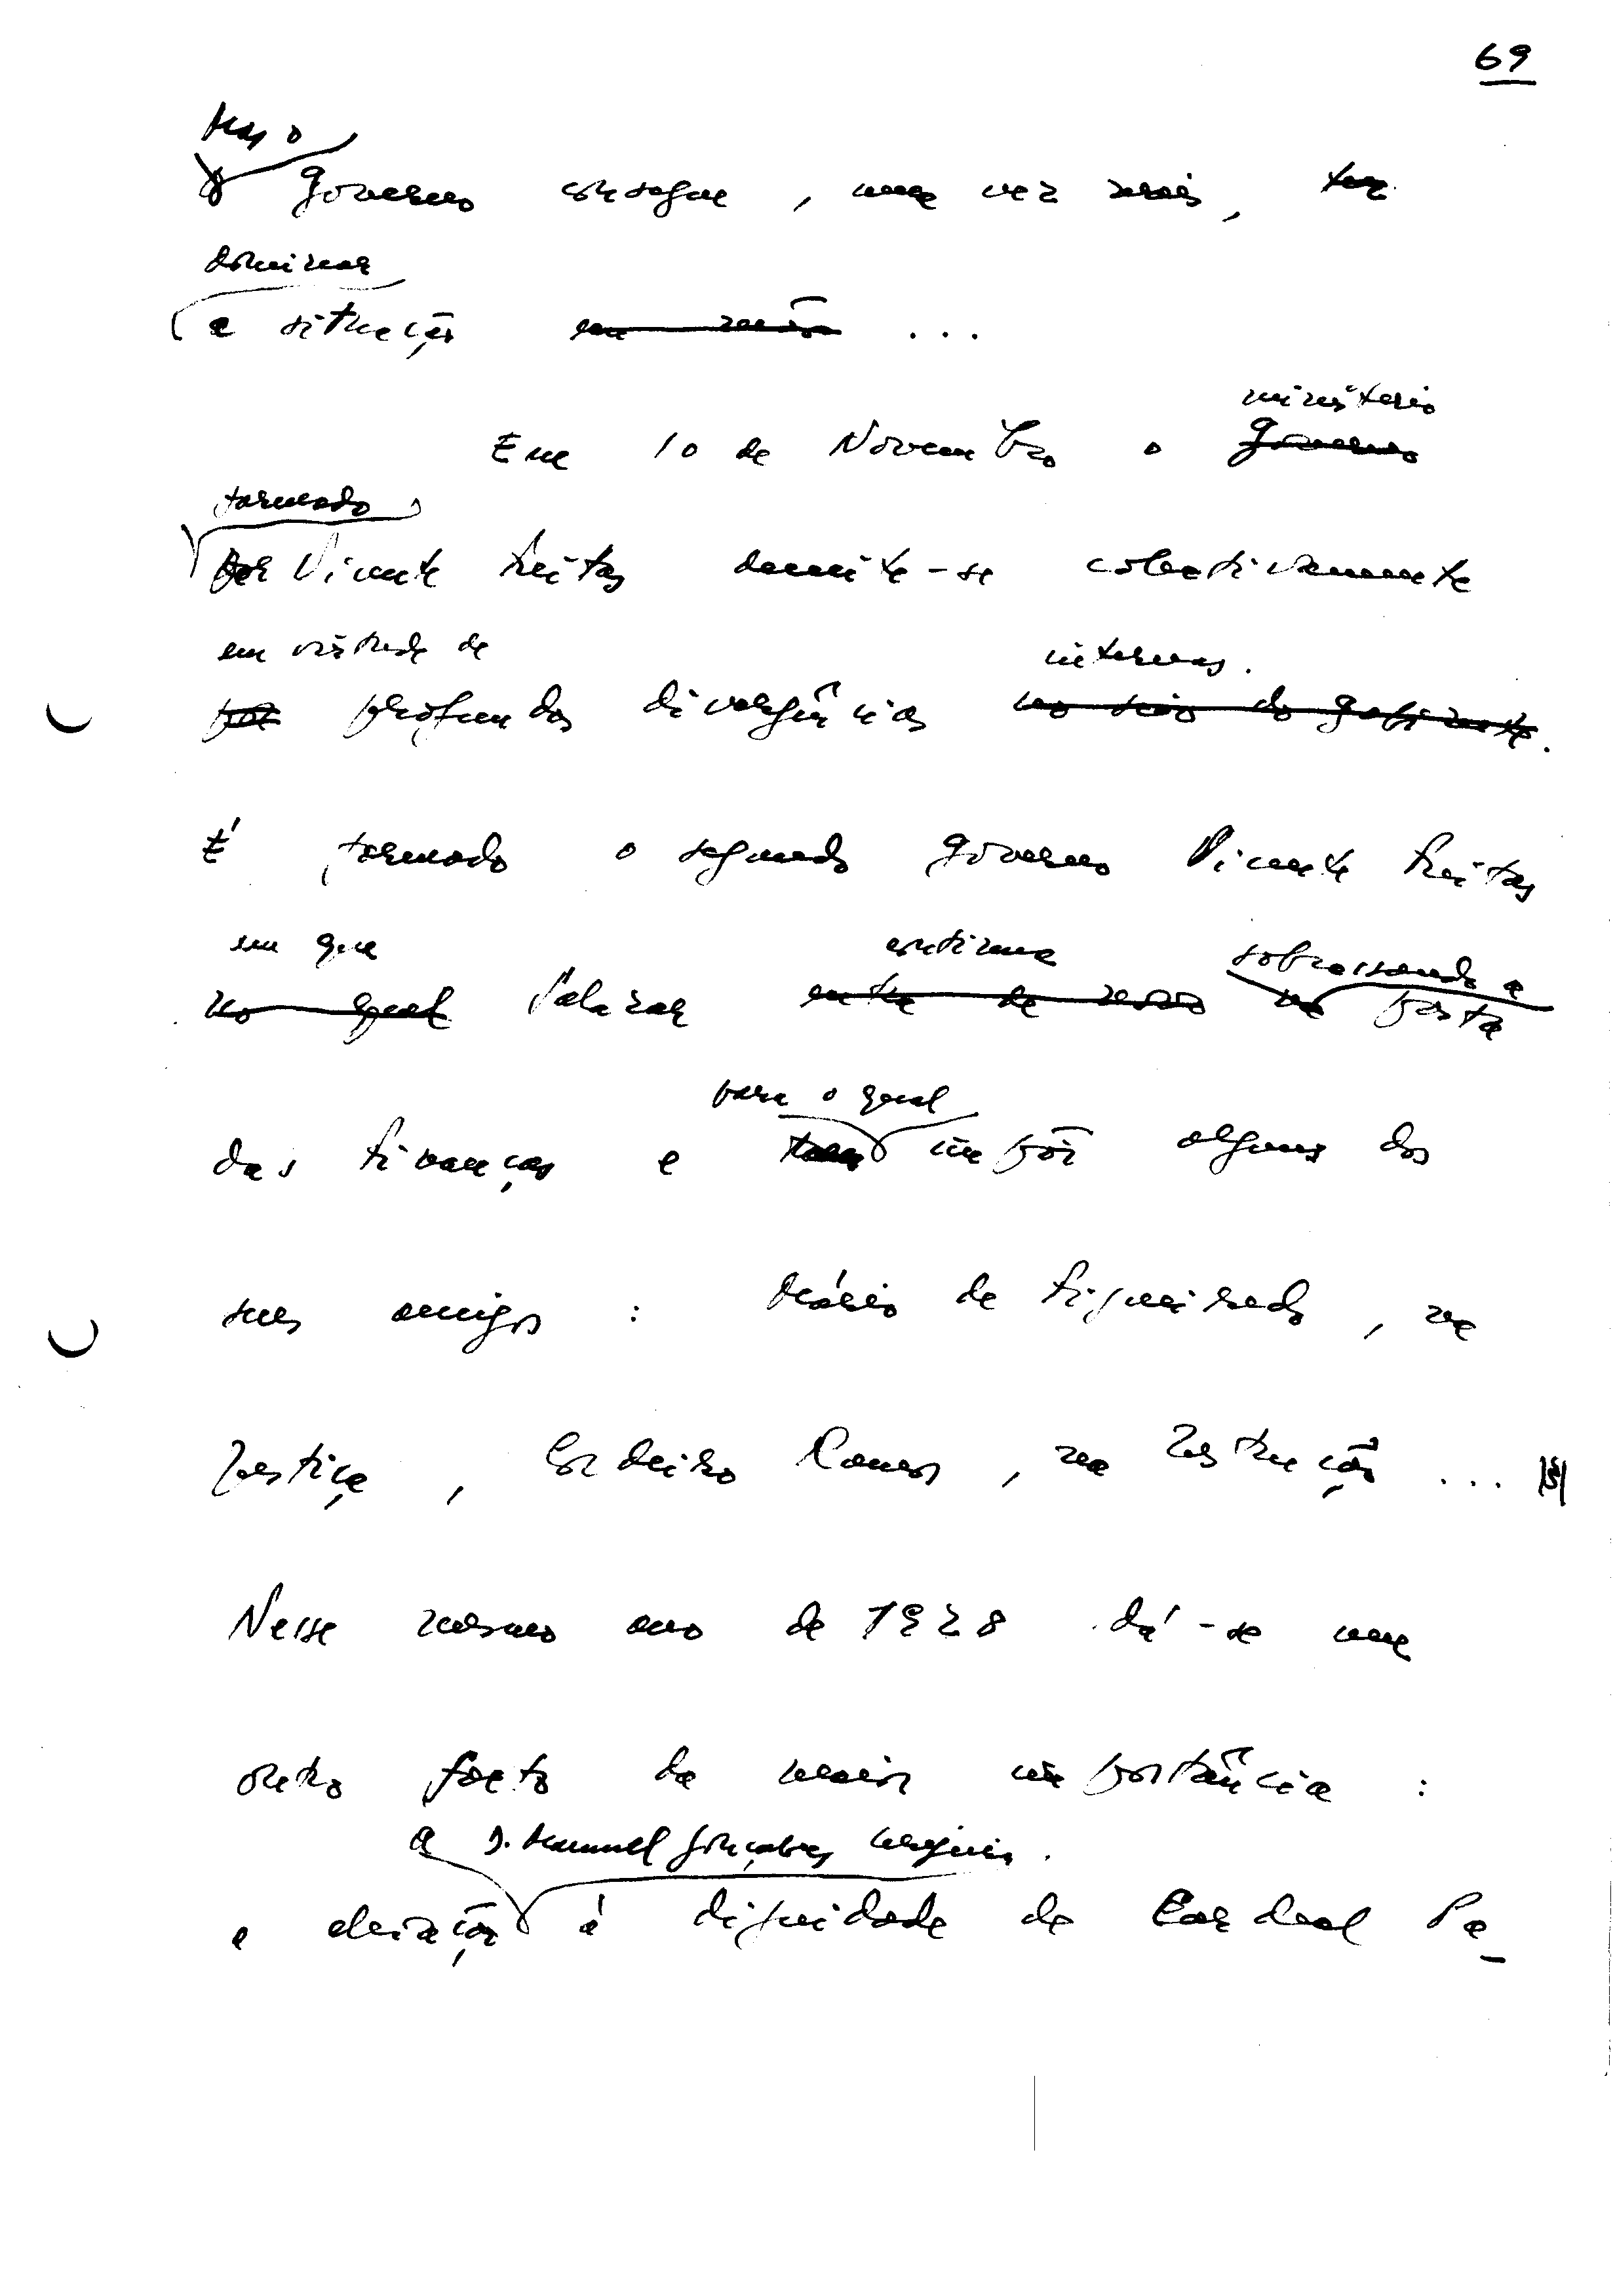 69
Mas o
O Governo consegue, uma vez mais, ter
dominar
a situação em mão ...
ministerio
Em 10 de Novembro o Governo
formado
por Vicente Freitas demite-se colectivamente
em virtude de internas.
por profundas divergências no seio do gabinete.
É formado o segundo governo Vicente Freitas
em que continua sobraçando a
no qual Salazar entra de novo na pasta
para o qual
das Finanças e impôs alguns dos
seus amigos : Mário de Figueiredo, na
Justiça, Cordeiro Ramos, na Instrução ...
Nesse mesmo ano de 1928 dá-se um
outro facto da maior importância :
a D. Manuel Gonçalves Cerejeira.
a elevação à dignidade de Cardeal Pa-